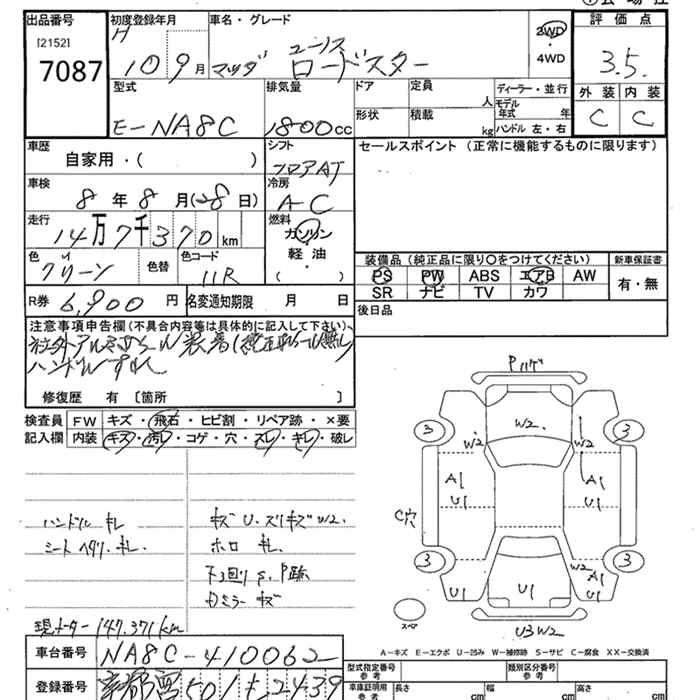 出品番号 初度登録年月 車名・グレード 評価点
[2152] H ユーノス 2WD
7087 10 9月 マツダ ロードスター ・4WD 3.5.
型式 排気量 ドア 定員 人 ディーラー・並行 外装 内装
E-NA8C 1800cc 形状 積載 kg モデル年式 年 C C
ハンドル 左・右
車歴 シフト セールスポイント (正常に機能するものに限ります)
自家用・( ) フロアAT
車検 冷房
8年8月(28日) AC
走行 燃料
14万7千370km ガソリン
色 色替 色コード ・軽油・ 装備品 (純正品に限り○をつけてください) 新車保証書
グリーン 11R ( ) PS PW ABS エアB AW 有・無
R券 6,900円 名変通知期限 月 日 SR ナビ TV カワ
後日品
注意事項申告欄(不具合内容等は具体的に記入して下さい)
社外アルミ
ハンドルすれ
修復歴 有 〔箇所 〕
検査員 FW キズ・飛石・ヒビ割・リペア跡・×要
記入欄 内装 キズ・汚レ・コゲ・穴・スレ・キレ・破レ
Pハゲ
W2.
3 3
W2 W2
A1 A1
U1 U1
C穴
3 3
W2
U1 U1 A1
U1
スペア U3 W2
ハンドル キレ キズ U. スリキズ W2.
シート ヘタリ. キレ. ホロ キレ.
下回り S. P跡
Rミラー キズ
現メーター 147.371km
A-キズ E-エクボ U-凹み W-補修跡 S-サビ C-腐食 XX-交換済
車台番号 NA8C-410062 型式指定番号 類別区分番号
登録番号 京都 501 2439 車庫証明用 参考 長さ cm 幅 cm 高さ cm